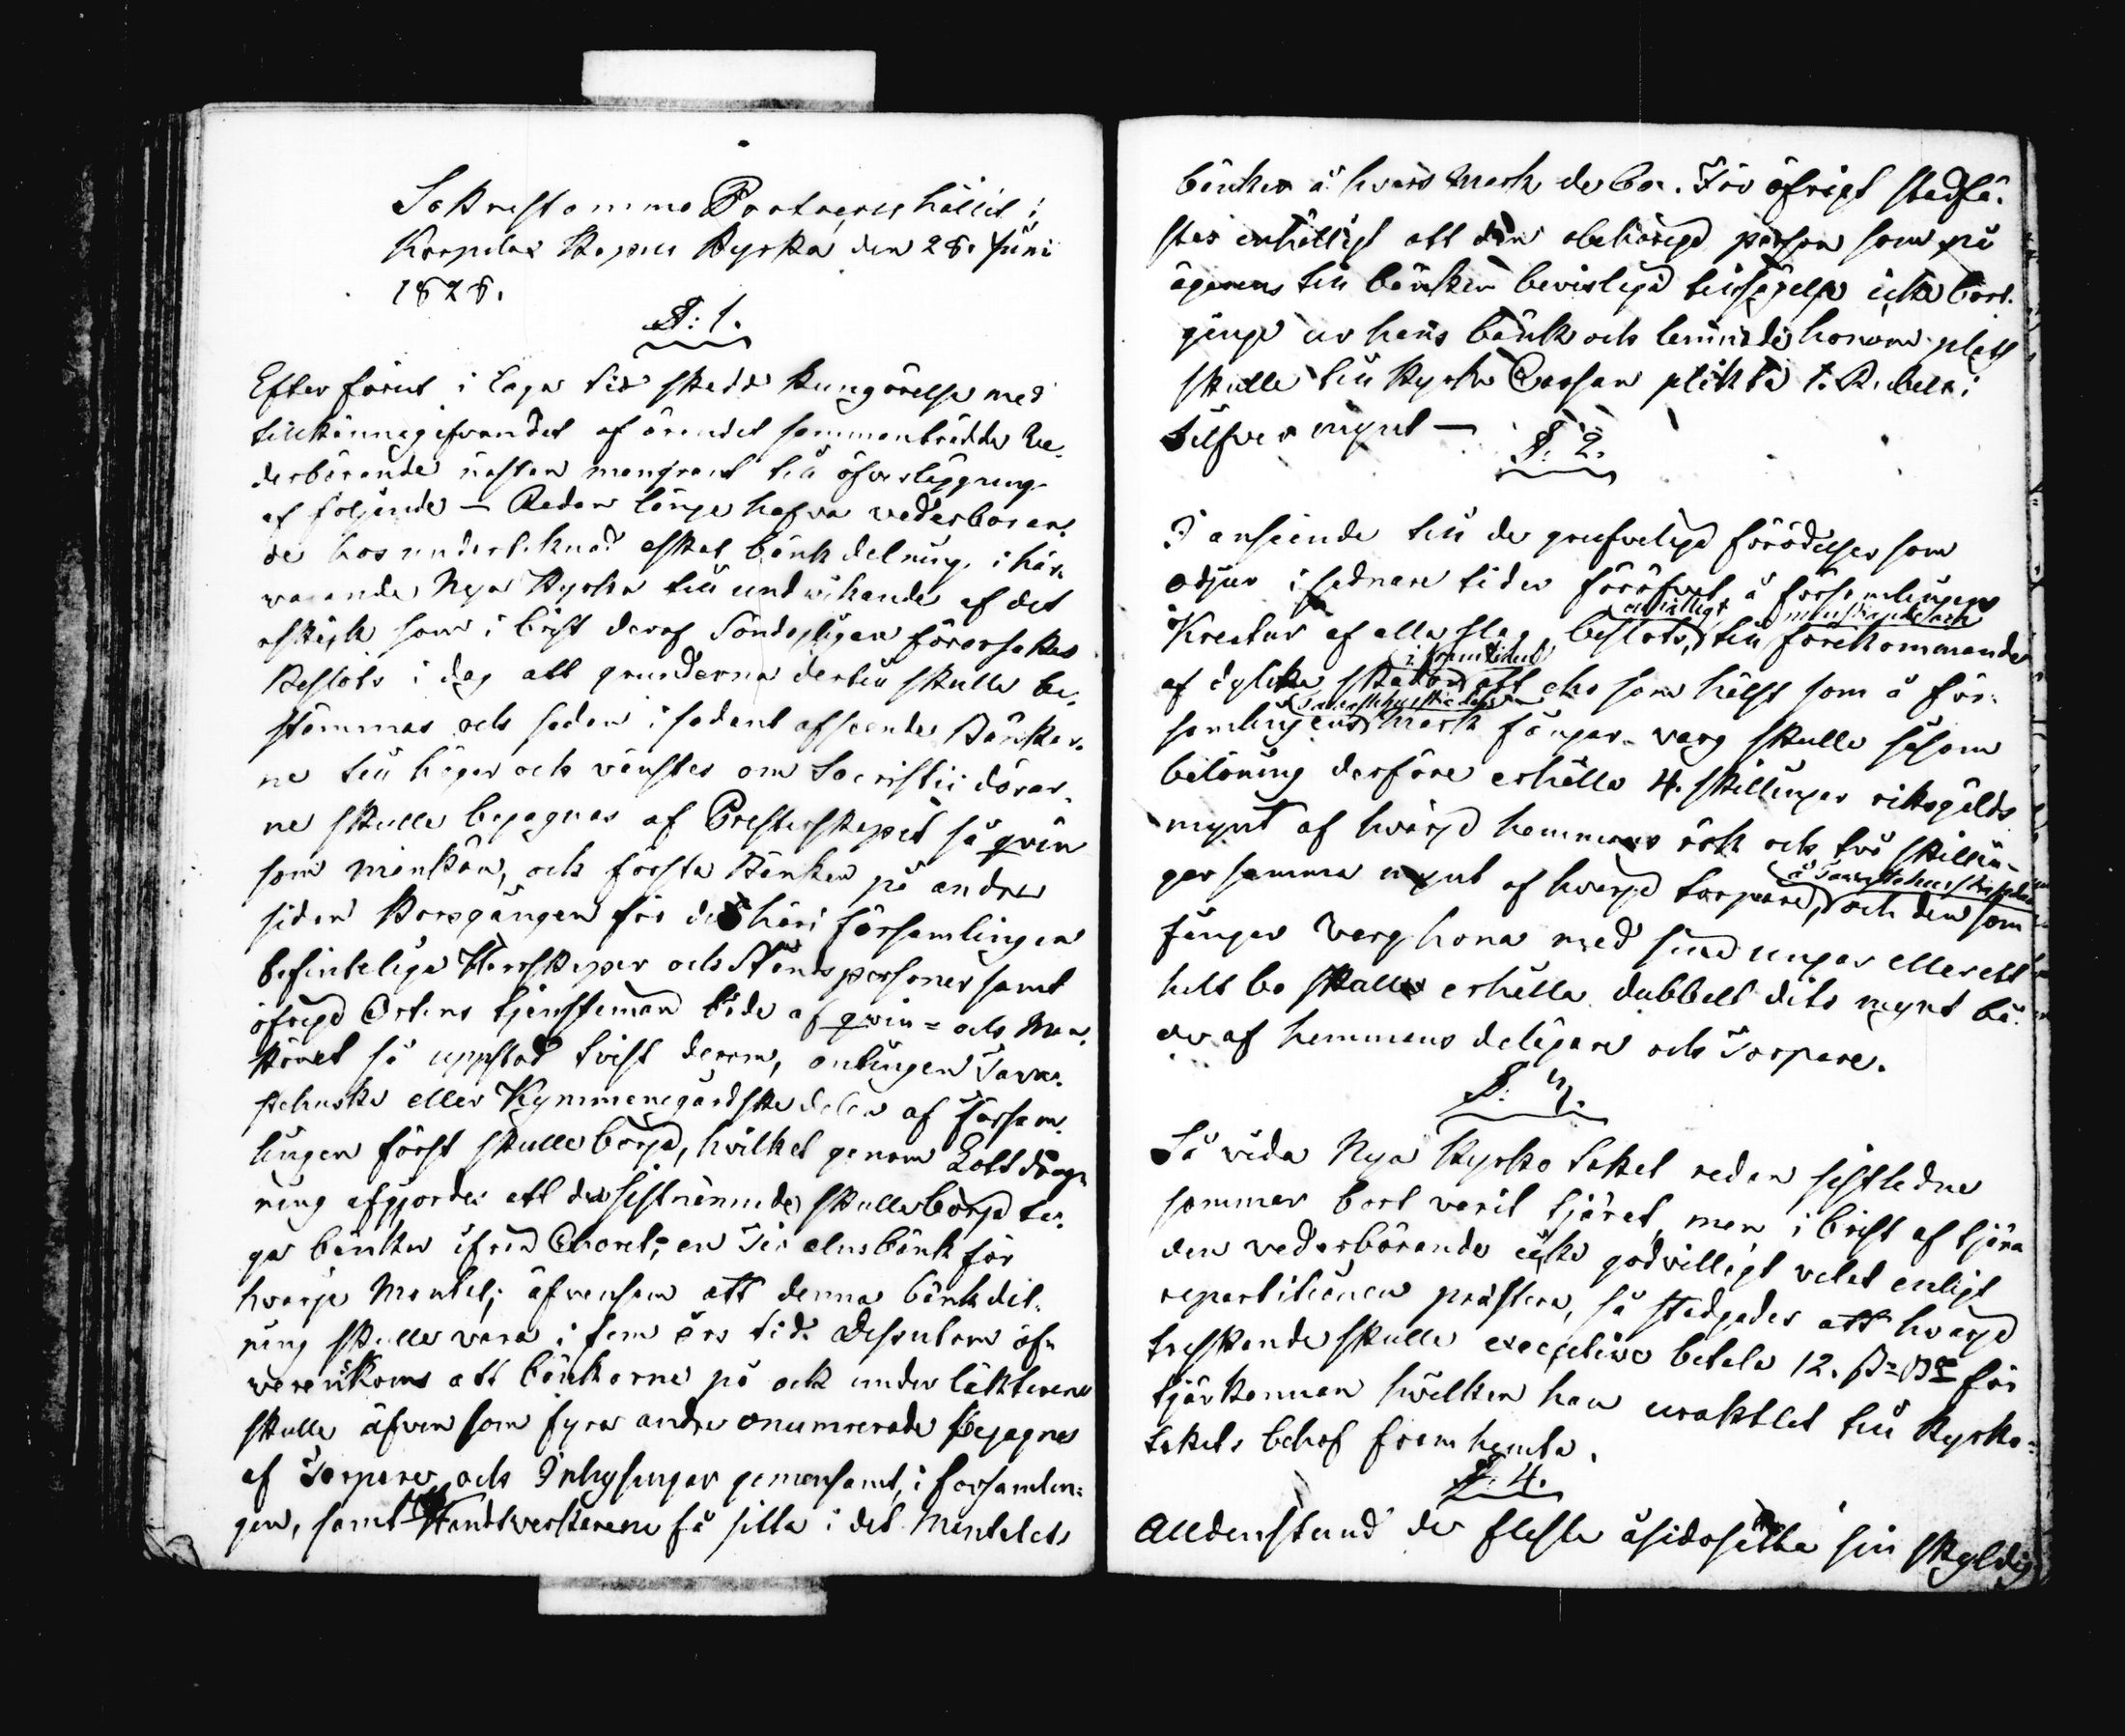 Sockne stämmo Protocoll hållit i
Korpilax Kapell Kyrka den 28. Juni
1828.
§: 1.
Efter förut i laga tid skedd kungörelse med
tillkännagifvandet af ärendet sammanträdde Ve-
derbörande nästan mangrant till öfverläggning
af följande — Redan länge hafva vederböran-
de hos undertecknad äskat bänkdelning i här-
varande Nya Kyrka till undvikande af det
oskick som i brist deraf Söndagligen förorsakas
Beslöts i dag att grunderna dertill skulle be-
stämmas och sedan i sådant afseende Bänkar-
ne till höger och vänster om Sacristii dörar-
ne skulle begagnas af Presterskapet så qvin
som mankön, och första Bänken på andra
sidan Korsgången för de här i församlingen
befinteliga Herrskaper och Stånds personer samt
öfrige Ortens tjensteman både af qvin= och Man-
könet så uppstod tvist derom, antingen Tava-
stehuska eller Kymmenegårdska delen af Försam-
lingen först skulle börja, hvilket genom Lottdrag-
ning afgjordes att den sistnämnde skulle börja ta-
ga bänkar ifrån Choret; en Tio alns bänk för
hvarje Mantal; äfvensom att denna bänkdel-
ning skulle vara i fem års tid. Dessutom öf-
verenskoms att bänkarne på och under läktarene
skulle äfven som fyra andra onumrerade begagnas
af Torpare och Inhysingar gemensamt, i församlin-
gen, samt Handtverkarene få sitta i det Mantalets
bänkar å hvars mark de bo. För öfrigt stadfä-
stes enhälligt att den obehörige person som på
ägarens till bänken bevislige tillsägelse icke bort-
ginge ur hans bänk och lemnade honom plats
skulle till Kyrko Cassan plikta 1. Ru. bela i
Silfver mynt —
§. 2.
I anseende till de grufvelige förödelser som
odjur i sednare tider föröfvat å församlingens
Kreatur af alla slag, beslöts, enhälligt till förekommande
af dylika skador i framtiden att eho som hälst som å för-
samlingens Tavastehuska mark fångar varg skulle såsom
belöning derföre erhålla 4. skillingar riksgälds
mynt af hvarje hemmans rök och två skillin-
gar samma mynt af hvarje torpare, och den som
fångar Varghona med sina ungar eller ett
helt bo skulle erhålla dubbelt dito mynt bå-
de af hemmans delägare och Torpare.
§. 3.
Så vida Nya Kyrko taket redan sistledne
sommar bort varit tjärat, men i brist af tjära
den vederbörande icke godvilligt velat enligt
repartitionen prästera, så stadgades att hvarje
treskande skulle executive betala 12. Rs. Ba för
tjärkannan hvilken han uraktlåt till Kyrko-
takets behof framhemta.
§. 4.
Alldenstund de flesta åsidosätta sin skyldig